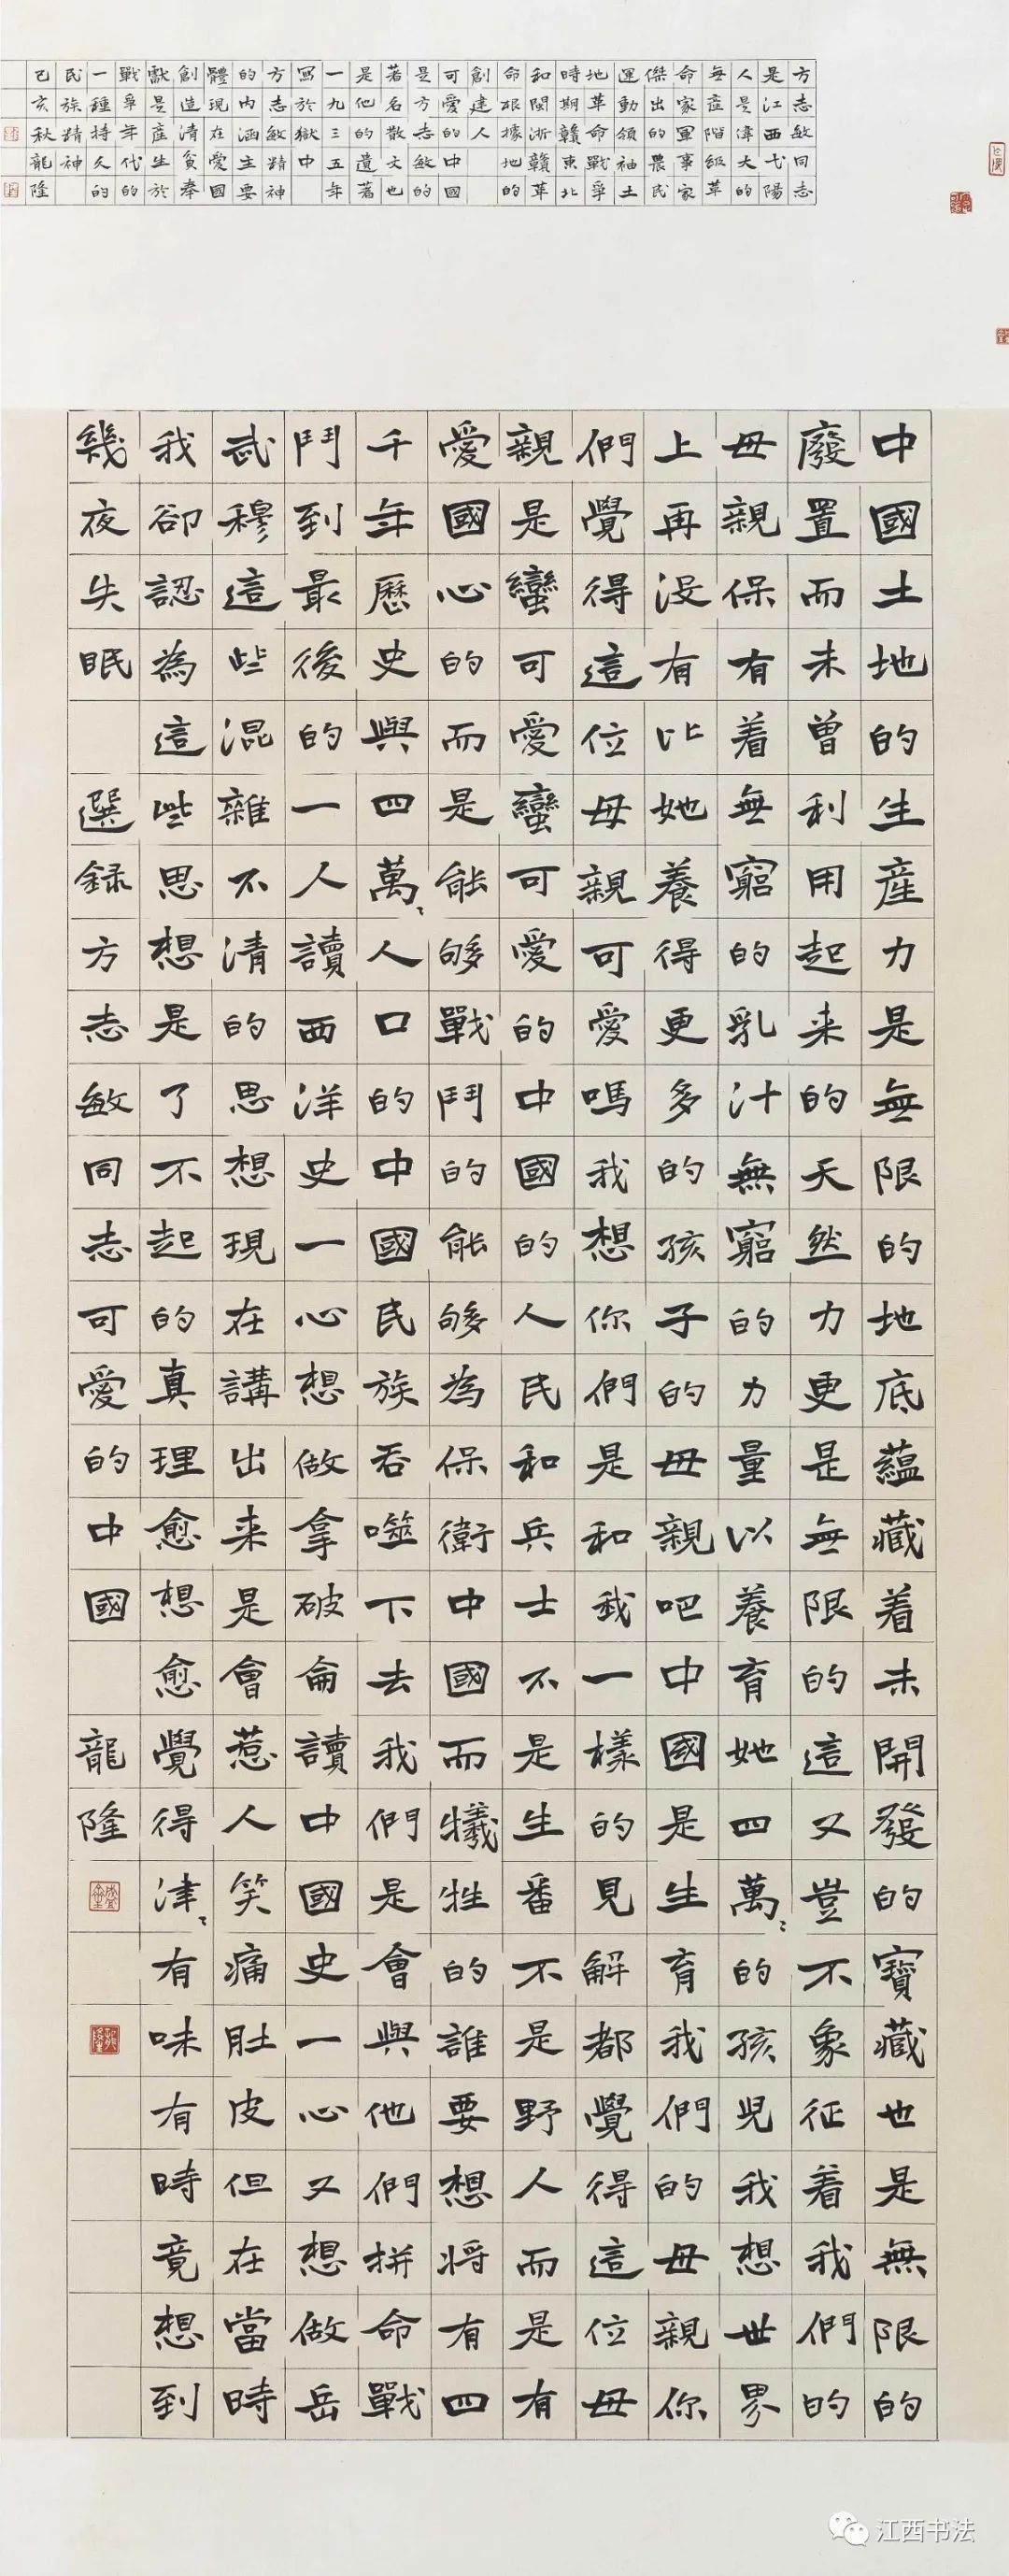 方志敏同志
是江西弋陽
人是偉大的
無產階級革
命家軍事家
傑出的農民
運動領袖土
地革命戰爭
時期贛東北
和閩浙贛革
命根據地的
創建人
可愛的中國
是方志敏的
著名散文也
是他的遺著
一九三五年
寫於獄中
方志敏精神
的內涵主要
體現在愛國
創造清貧奉
獻是產生於
戰爭年代的
一種持久的
民族精神
己亥秋龍隆
中國土地的生產力是無限的地底蘊藏着未開發的寶藏也是無限的
廢置而未曾利用起来的天然力更是無限的這又豈不象征着我們的
母親保有着無窮的乳汁無窮的力量以養育她四萬〻的孩兒我想世界
上再没有比她養得更多的孩子的母親吧中國是生育我們的母親你
們覺得這位母親可愛嗎我想你們是和我一樣的見解都覺得這位母
親是蠻可愛蠻可愛的中國的人民和兵士不是生番不是野人而是有
愛國心的而是能够戰鬥的能够為保衛中國而犧牲的誰要想將有四
千年歷史與四萬〻人口的中國民族吞噬下去我們是會與他們拼命戰
鬥到最後的一人讀西洋史一心想做拿破侖讀中國史一心又想做岳
武穆這些混雜不清的思想現在講出来是會惹人笑痛肚皮但在當時
我卻認為這些思想是了不起的真理愈想愈覺得津〻有味有時竟想到
幾夜失眠 選録方志敏同志可愛的中國 龍隆
江西书法